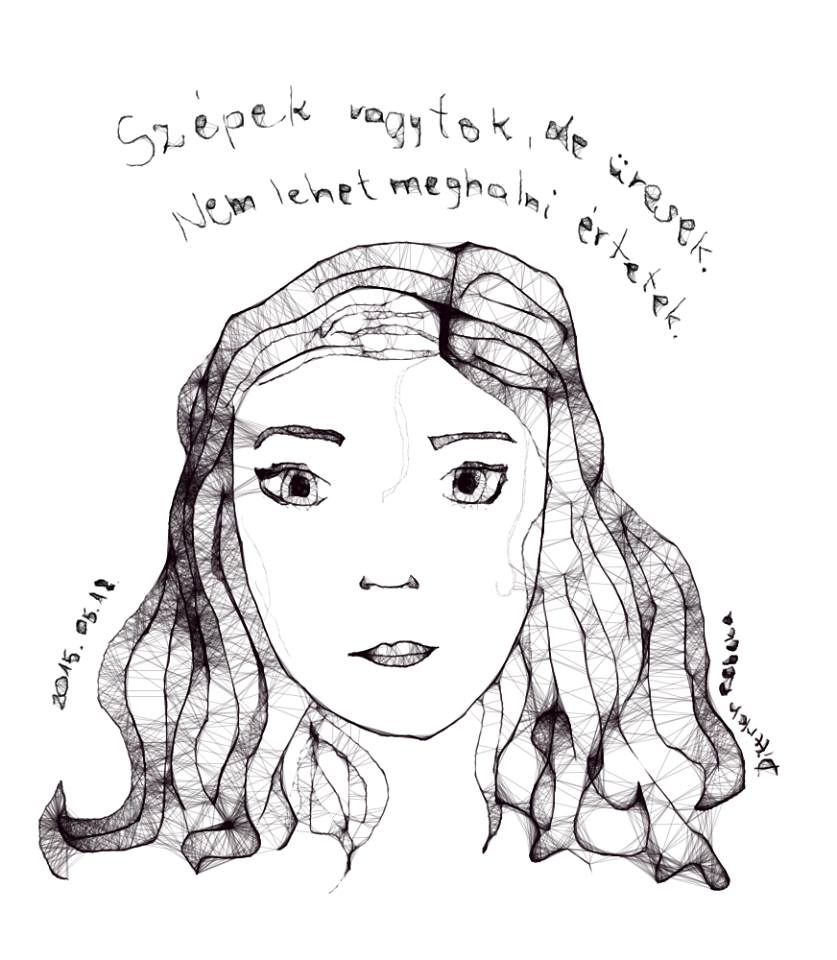 Szépek vagytok, de üresek.
Nem lehet meghalni értetek.
2015.05.12.
Dittrich Rebeka